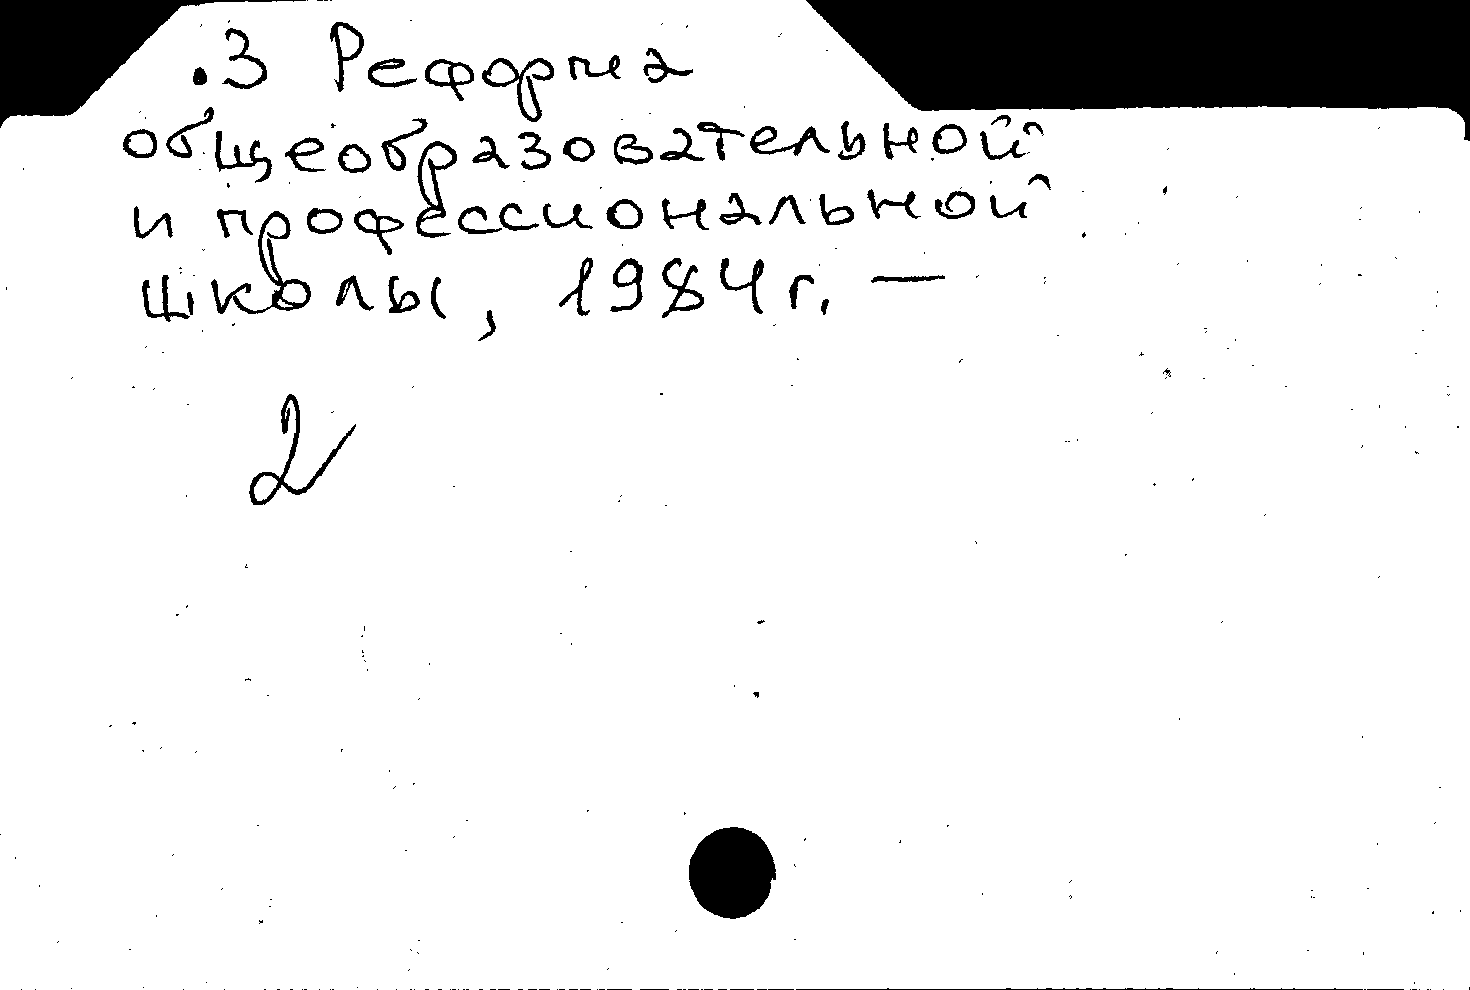 .3 Реформа
общеобразовательной
и профессиональной
школы, 1984г. —
2